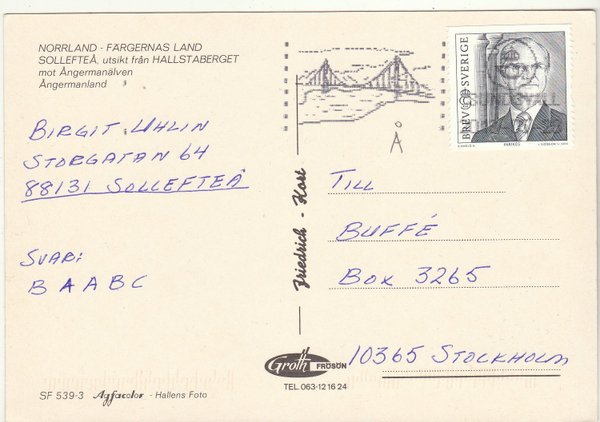 NORRLAND - FÄRGERNAS LAND
SOLLEFTEÅ, utsikt från HALLSTABERGET
mot Ångermanälven
Ångermanland
BIRGIT UHLIN
STORGATAN 64
88131 SOLLEFTEÅ
SVAR:
B A A B C
SF 539-3 Agfacolor - Hallens Foto
Friedrich - Kort
Groth FRÖSÖN
TEL. 063-12 16 24
BREV SVERIGE
SUNDSVALL
Å
TILL
BUFFÉ
BOX 3265
10365 STOCKHOLM